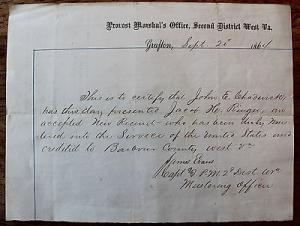 Provost Marshal's Office, Second District West Va.
Grafton, Sept 2d 1864
This is to certify that John E. Chadwick,
has this day presented Jacob H. Ringer an
accepted New Recruit who has been duly mus
tered into the Service of the United States and
credited to Barbour County, West Va
James Evans
Capt & P.M. 2d Dist. W Va
Mustering Officer